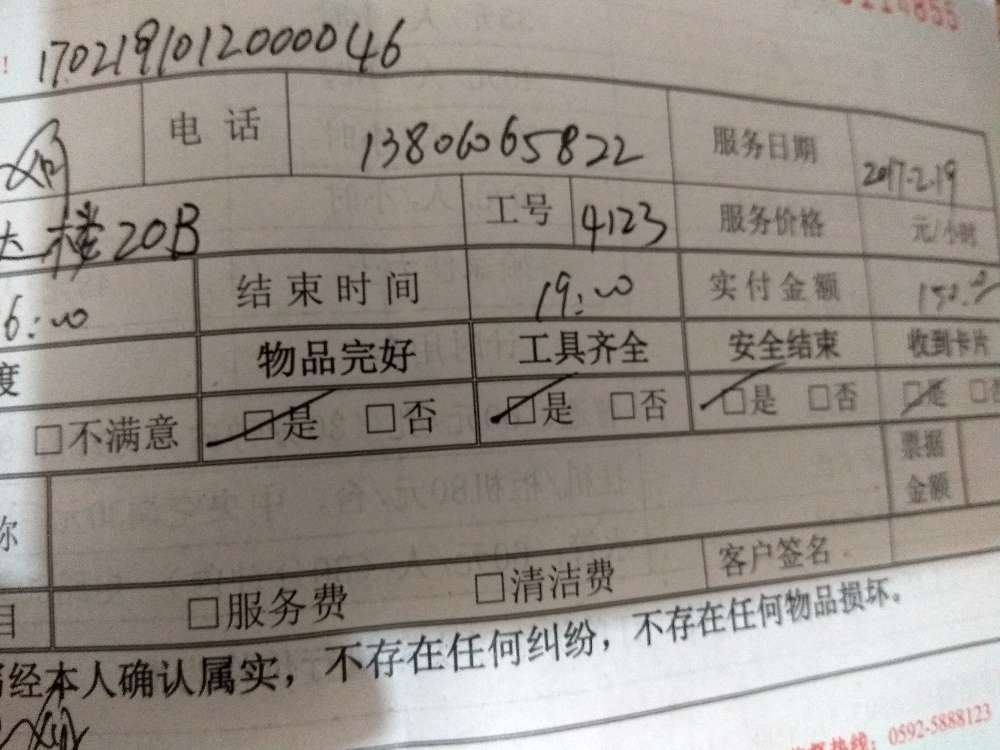 ! 17021910120000046
电话 13806065822 服务日期 2017.2.19
大楼20B 工号 4123 服务价格 元/小时
6:00 结束时间 19:00 实付金额
度 物品完好 工具齐全 安全结束 收到卡片
□不满意 □是 □否 □是 □否 □是 □否 □是
称 票据金额
目 □服务费 □清洁费 客户签名
经本人确认属实，不存在任何纠纷，不存在任何物品损坏。
热线：0592-5888123